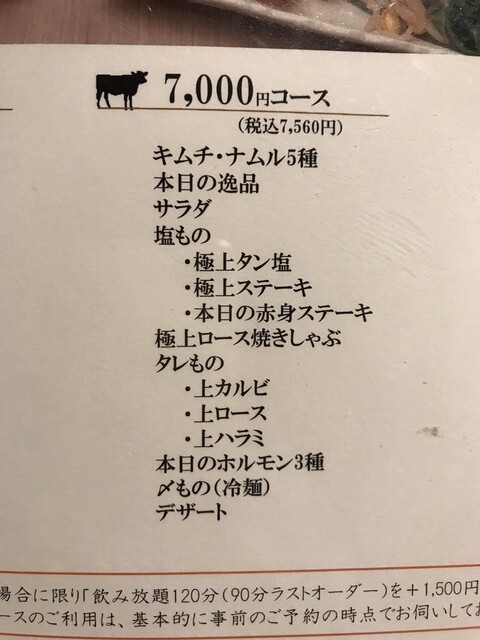 7,000円コース
(税込7,560円)
キムチ・ナムル5種
本日の逸品
サラダ
塩もの
・極上タン塩
・極上ステーキ
・本日の赤身ステーキ
極上ロース焼きしゃぶ
タレもの
・上カルビ
・上ロース
・上ハラミ
本日のホルモン3種
〆もの(冷麺)
デザート
場合に限り「飲み放題120分(90分ラストオーダー)を+1,500円
ースのご利用は、基本的に事前のご予約の時点でお伺いしてお